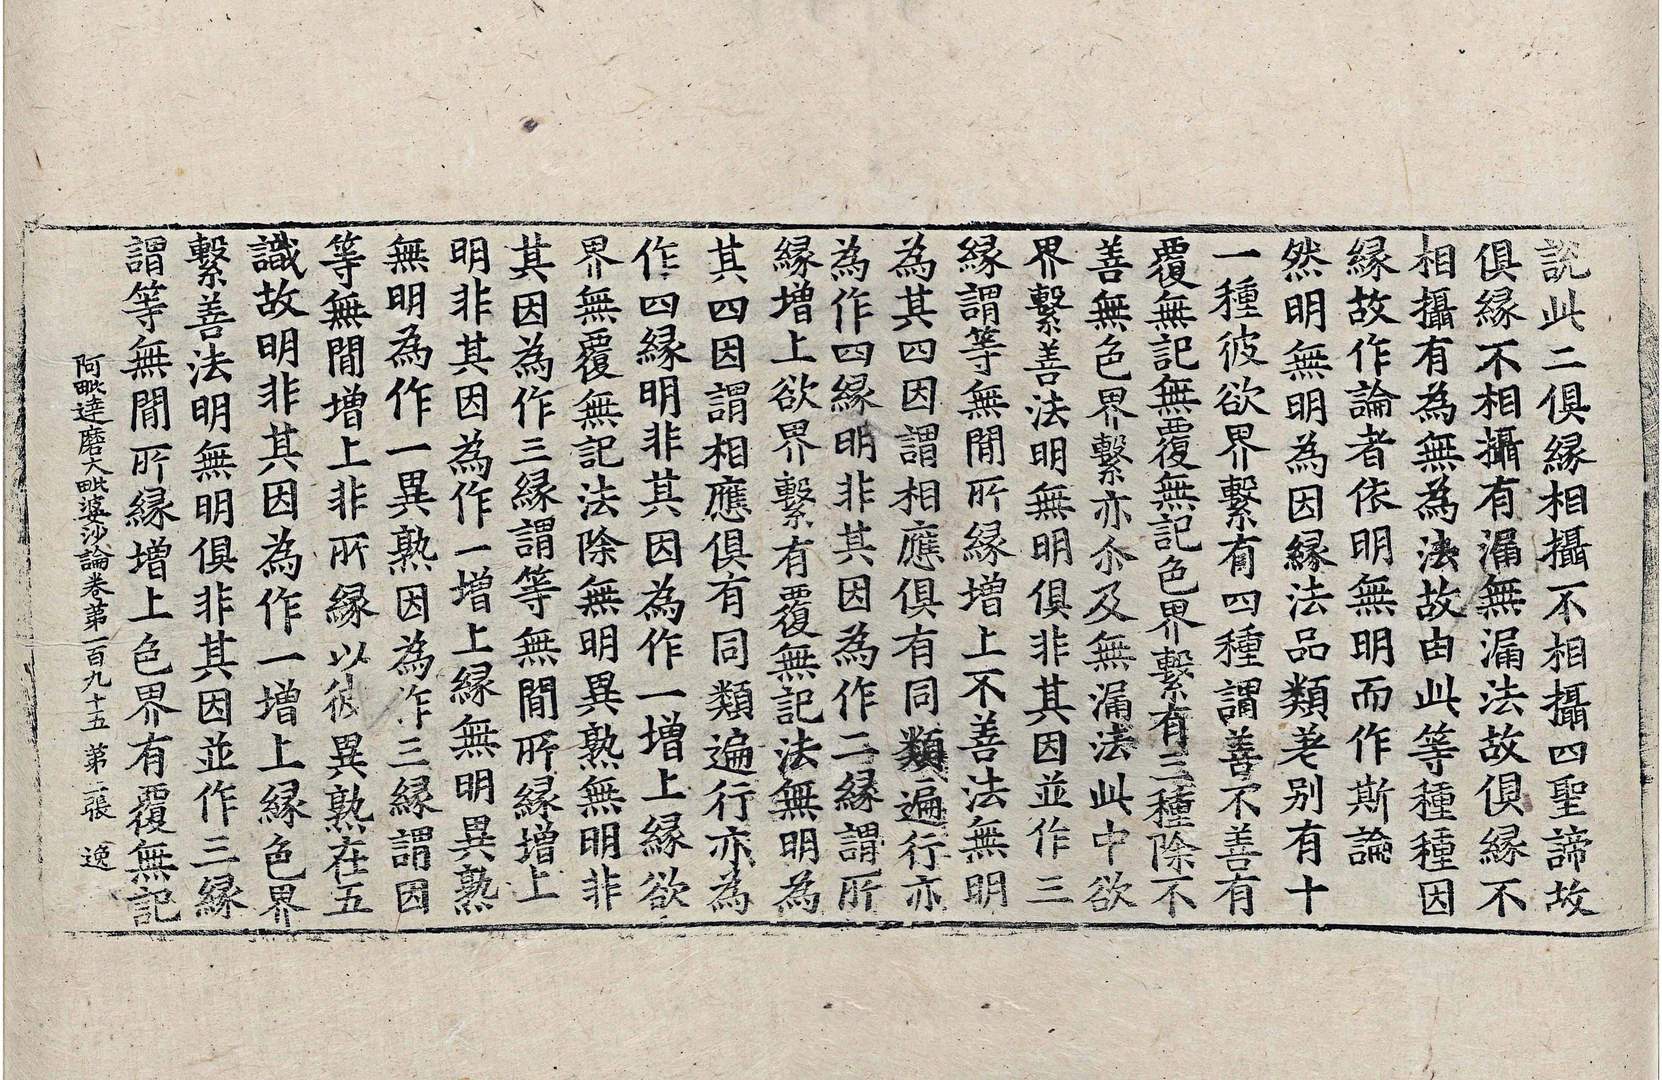 説此二俱縁相攝不相攝四聖諦故
俱縁不相攝有漏無漏法故俱縁不
相攝有為無為法故由此等種種因
縁故作論者依明無明而作斯論
然明無明為因縁法品類差別有十
一種彼欲界繫有四種謂善不善有
覆無記無覆無記色界繫有三種除不
善無色界繫亦尒及無漏法此中欲
界繫善法明無明俱非其因並作三
縁謂等無間所縁增上不善法無明
為其四因謂相應俱有同類遍行亦
為作四縁明非其因為作二縁謂所
縁增上欲界繫有覆無記法無明為
其四因謂相應俱有同類遍行亦為
作四縁明非其因為作一增上縁欲
界無覆無記法除無明異熟無明非
其因為作三縁謂等無間所縁增上
明非其因為作一增上縁無明異熟
無明為作一異熟因為作三縁謂因
等無間增上非所縁以彼異熟在五
識故明非其因為作一增上縁色界
繫善法明無明俱非其因並作三縁
謂等無間所縁增上色界有覆無記
阿毗達磨大毗婆沙論卷第一百九十五 第二張 逸